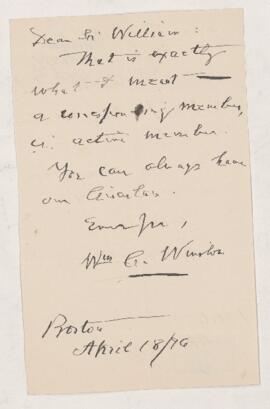 Dear Sir William:
That is exactly
what I meant —
a corresponding member,
active member.
You can always have
our Circular.
Ever Yrs,
Wm
Boston
April 18/96